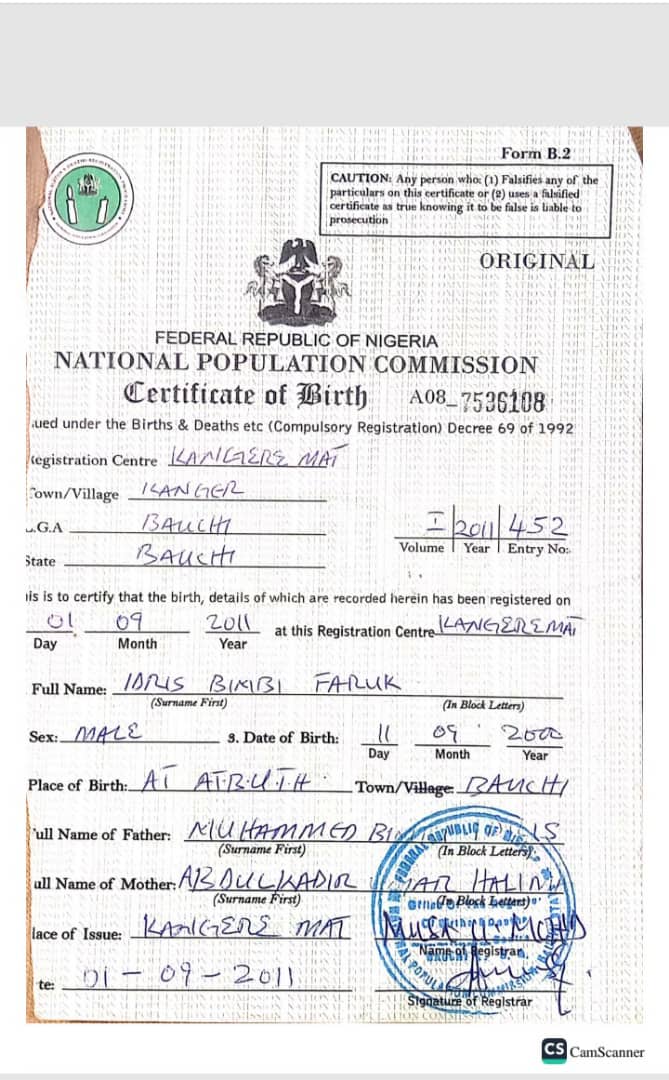 Form B.2
CAUTION: Any person who: (1) Falsifies any of the
particulars on this certificate or (2) uses a falsified
certificate as true knowing it to be false is liable to
prosecution
ORIGINAL
FEDERAL REPUBLIC OF NIGERIA
NATIONAL POPULATION COMMISSION
Certificate of Birth A08_7536108
ued under the Births & Deaths etc (Compulsory Registration) Decree 69 of 1992
Registration Centre KANGERE MAT
Town/Village KANGER
L.G.A BAUCHI
State BAUCHI
I 2011 452
Volume Year Entry No:
is is to certify that the birth, details of which are recorded herein has been registered on
01 09 2011 at this Registration Centre KANGERE MAT
Day Month Year
Full Name: IDRIS FARUK
(Surname First) (In Block Letters)
Sex: MALE 3. Date of Birth: 11 09 2000
Day Month Year
Place of Birth: AT A.T.B.U.T.H Town/Village: BAUCHI
ull Name of Father: MUHAMMED
(Surname First) (In Block Letters)
ull Name of Mother: ABDULKADIR HALIMA
(Surname First) (In Block Letters)
lace of Issue: KANGERE MAT
Name of Registrar
te: 01-09-2011
Signature of Registrar
CS CamScanner